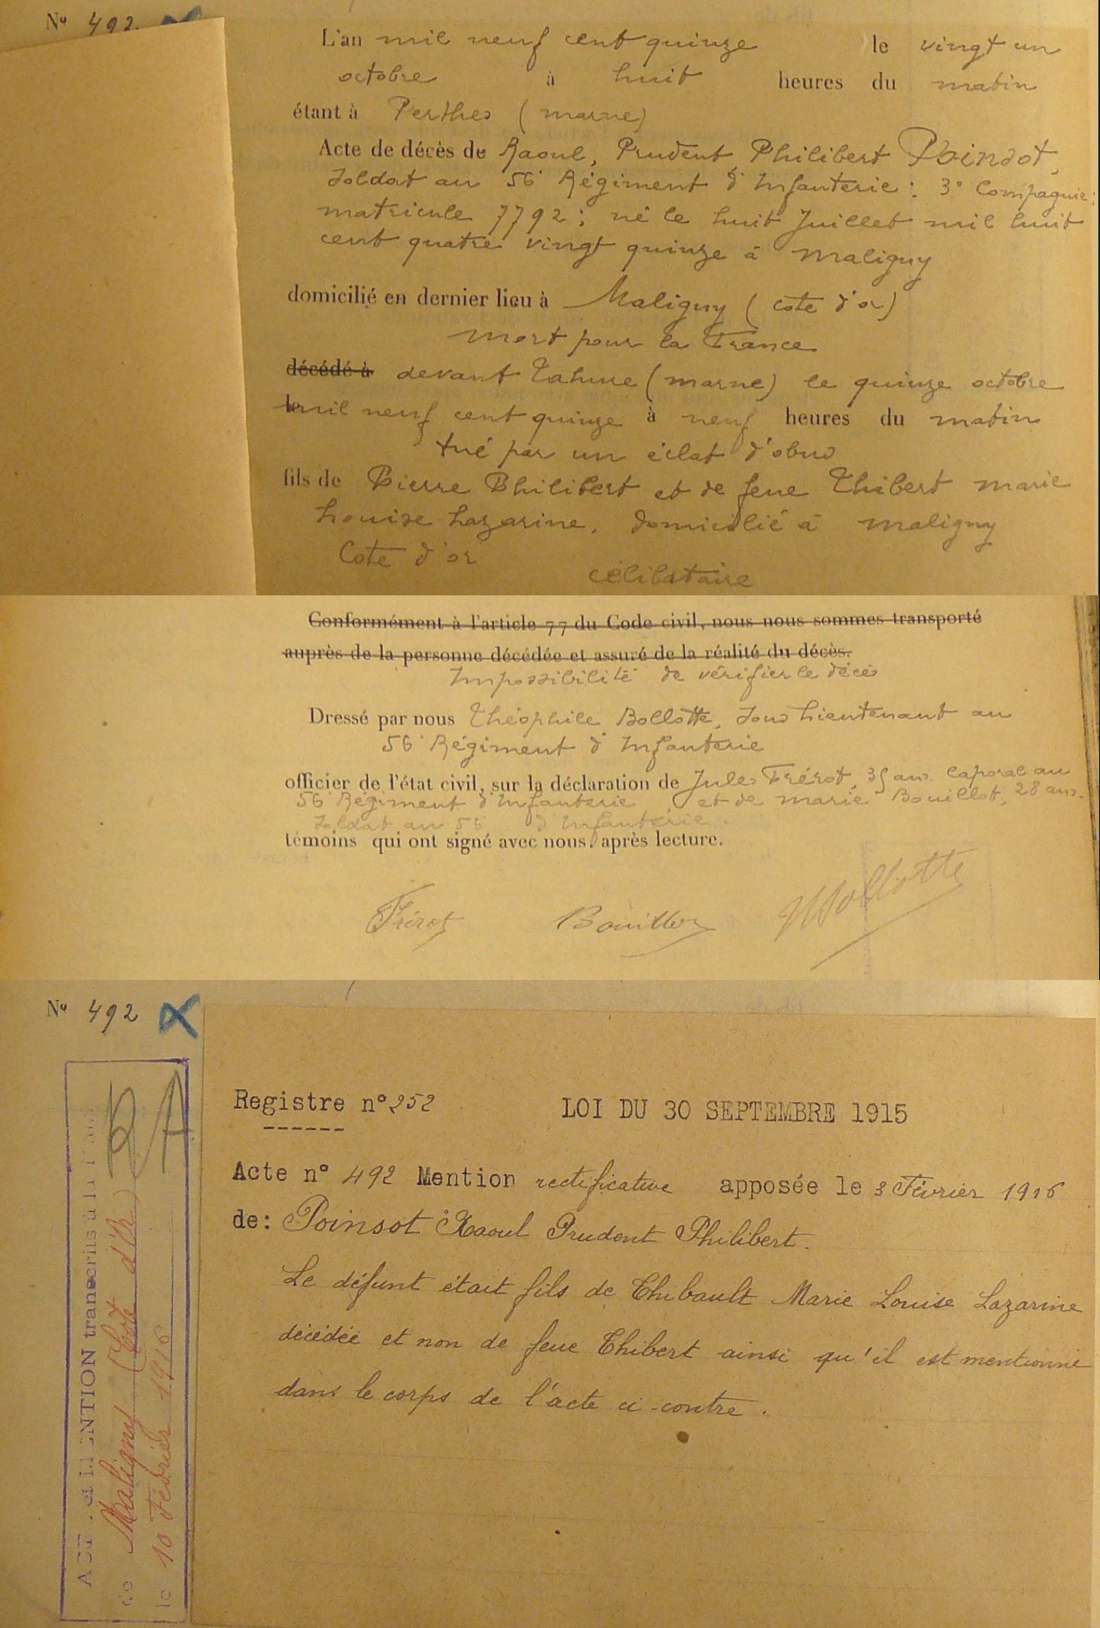 No 492
L'an mil neuf cent quinze le vingt un
octobre à huit heures du matin
étant à Perthes (marne)
Acte de décès de Raoul, Prudent Philibert Poinsot,
Soldat au 56e Régiment d'Infanterie: 3e Compagnie:
matricule 7792; né le huit Juillet mil huit
cent quatre vingt quinze à Maligny
domicilié en dernier lieu à Maligny (cote d'or)
Mort pour la France
décédé à devant Tahure (marne) le quinze octobre
le mil neuf cent quinze à neuf heures du matin
tué par un éclat d'obus
fils de Pierre Philibert et de feue Thibert marie
Louise Lazarine, domicilié à Maligny
Cote d'or
célibataire
Conformément à l'article 77 du Code civil, nous nous sommes transporté
auprès de la personne décédée et assuré de la réalité du décès.
Impossibilité de vérifier le décès
Dressé par nous Théophile Bollotte, Sous Lieutenant au
56e Régiment d'Infanterie
officier de l'état civil, sur la déclaration de Jules Frérot, 35 ans Caporal au
56 Régiment d'Infanterie et de marie Bouillot, 28 ans.
Soldat au 56 d'Infanterie.
témoins qui ont signé avec nous, après lecture.
Frérot Bouillot Bollotte
No 492
Registre n° 252
LOI DU 30 SEPTEMBRE 1915
Acte n° 492 Mention rectificative apposée le 3 Février 1916
de: Poinsot Raoul Prudent Philibert.
Le défunt était fils de Thibault Marie Louise Lazarine
décédée et non de feue Thibert ainsi qu'il est mentionné
dans le corps de l'acte ci-contre.
RA
ACT et MENTION transcrits à la
de Maligny (Cote d'Or)
le 10 Février 1916